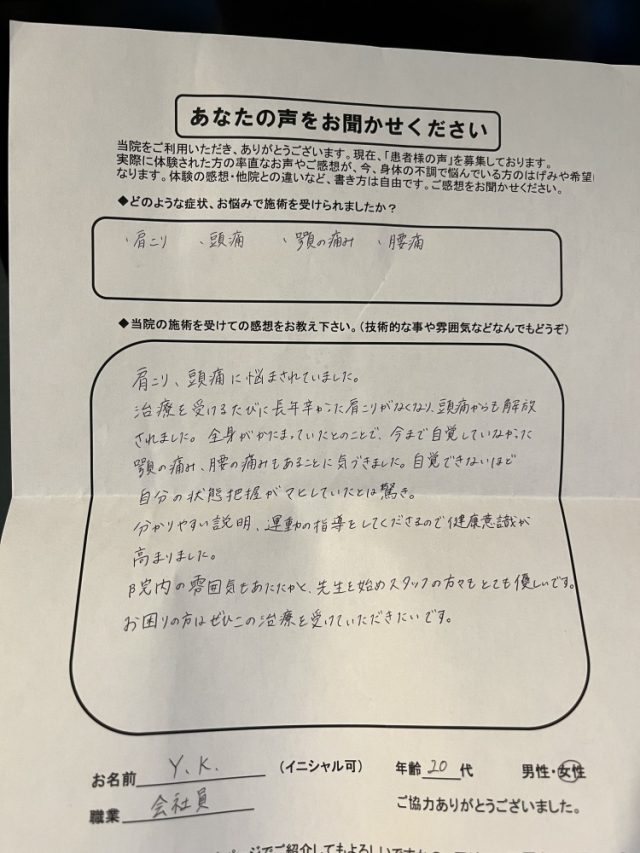 あなたの声をお聞かせください
当院をご利用いただき、ありがとうございます。現在、「患者様の声」を募集しております。
実際に体験された方の率直なお声やご感想が、今、身体の不調で悩んでいる方のはげみや希望に
なります。体験の感想・他院との違いなど、書き方は自由です。ご感想をお聞かせください。
◆どのような症状、お悩みで施術を受けられましたか？
・肩こり ・頭痛 ・顎の痛み ・腰痛
◆当院の施術を受けての感想をお教え下さい。(技術的な事や雰囲気などなんでもどうぞ)
肩こり、頭痛に悩まされていました。
治療を受けるたびに長年辛かった肩こりがなくなり、頭痛からも解放
されました。全身がかたまっていたとのことで、今まで自覚していなかった
顎の痛み、腰の痛みもあることに気づきました。自覚できないほど
自分の状態把握がマヒしていたとは驚き。
分かりやすい説明、運動の指導をしてくださるので健康意識が
高まりました。
院内の雰囲気もあたたかく、先生を始めスタッフの方々もとても優しいです。
お困りの方はぜひこの治療を受けていただきたいです。
お名前 Y.K. (イニシャル可) 年齢 20 代 男性・女性
職業 会社員 ご協力ありがとうございました。
ページでご紹介してもよろしいですか